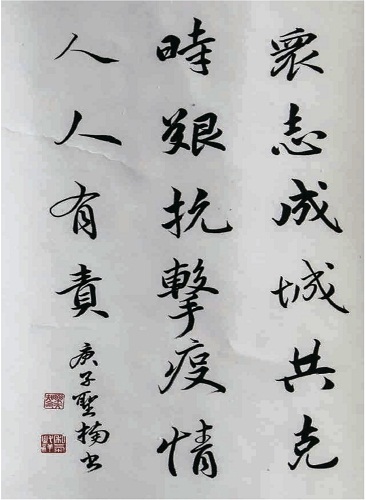 眾志成城共克
時艱抗擊疫情
人人有責
庚子聖楠书